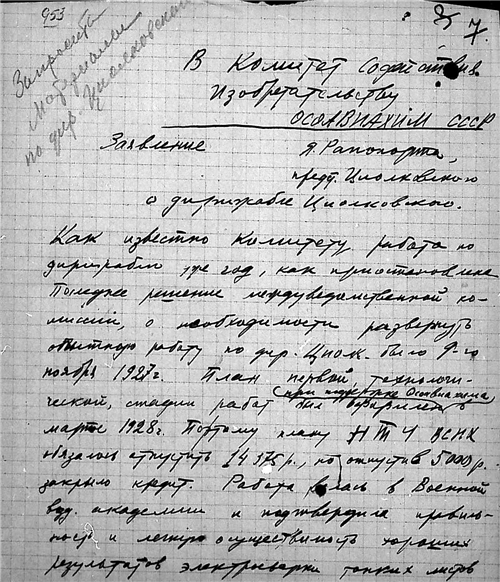 953
7.
Запросить
материалы
по дир. Циолковского
В Комитет Содействия
Изобретательству
ОСОАВИАХИМ СССР
Заявление Я. Рапопорта,
предст. Циолковского
о дирижабле Циолковского.
Как известно Комитету работа по
дирижаблю уже год, как приостановлена
Последнее решение междуведомственной ко-
миссии, о необходимости развернуть
опытную работу по дир. Циолк. было 9-го
ноября 1927г. План первой технологи-
при поддержке Осоавиахима
ческой, стадии работ был в
марте 1928г. Поэтому плану НТУ ВСНХ
обязалось отпустить 14375 р., но отпустив 5000 р.
закрыло кредит. Работа велась в Военной
возд. академии и подтвердила правиль-
ность и легкую осуществимость хороших
результатов электросварки тонких листов